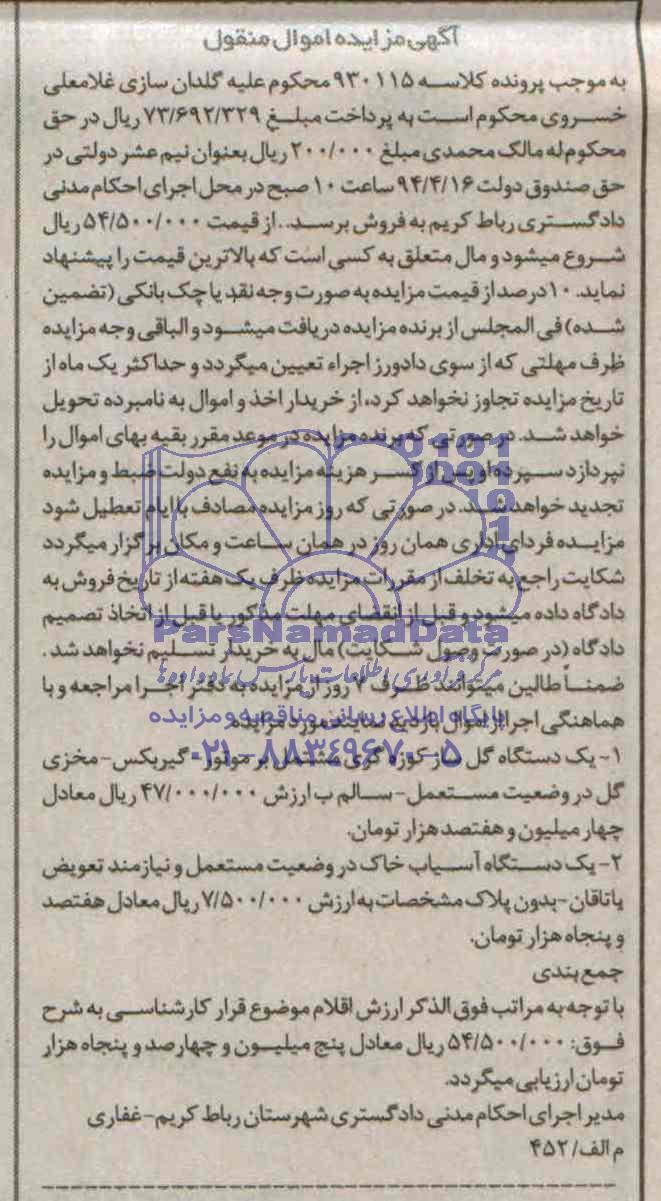 آگهی مزایده اموال منقول
به موجب پرونده کلاسه ۹۳۰۱۱۵ محکوم علیه گلدان سازی غلامعلی
خسروی محکوم است به پرداخت مبلغ ۷۳/۶۹۲/۳۲۹ ریال در حق
محکوم له مالک محمدی مبلغ ۲۰۰/۰۰۰ ریال بعنوان نیم عشر دولتی در
حق صندوق دولت ۹۴/۴/۱۶ ساعت ۱۰ صبح در محل اجرای احکام مدنی
دادگستری رباط کریم به فروش برسد. . از قیمت ۵۴/۵۰۰/۰۰۰ ریال
شروع میشود و مال متعلق به کسی است که بالاترین قیمت را پیشنهاد
نماید. ۱۰ درصد از قیمت مزایده به صورت وجه نقد یا چک بانکی (تضمین
شده) فی المجلس از برنده مزایده دریافت میشود و الباقی وجه مزایده
ظرف مهلتی که از سوی دادورز اجراء تعیین میگردد و حداکثر یک ماه از
تاریخ مزایده تجاوز نخواهد کرد، از خریدار اخذ و اموال به نامبرده تحویل
خواهد شد. در صورتی که برنده مزایده در موعد مقرر بقیه بهای اموال را
نپردازد سپرده او پس از کسر هزینه مزایده به نفع دولت ضبط و مزایده
تجدید خواهد شد. در صورتی که روز مزایده مصادف با ایام تعطیل شود
مزایده فردای اداری همان روز در همان ساعت و مکان برگزار میگردد
شکایت راجع به تخلف از مقررات مزایده ظرف یک هفته از تاریخ فروش به
دادگاه داده میشود و قبل از انقضای مهلت مذکور یا قبل از اتخاذ تصمیم
ParsNamadData
دادگاه (در صورت وصول شکایت) مال به خریدار تسلیم نخواهد شد.
مرکز فرآوری اطلاعات پارس نماد داده ها
ضمناً طالبین میتوانند ظرف ۷ روز از مزایده به دفتر اجرا مراجعه و با
هماهنگی اجرا از اموال بازدید نمایند مورد مزایده:
پایگاه اطلاع رسانی مناقصه و مزایده
۰۲۱-۸۸۳۴۹۶۷۰-۵
۱- یک دستگاه گل ساز کوزه گری مشتمل بر موتور - گیربکس- مخزی
گل در وضعیت مستعمل- سالم ب ارزش ۴۷/۰۰۰/۰۰۰ ریال معادل
چهار میلیون و هفتصد هزار تومان.
۲- یک دستگاه آسیاب خاک در وضعیت مستعمل و نیازمند تعویض
یاتاقان- بدون پلاک مشخصات به ارزش ۷/۵۰۰/۰۰۰ ریال معادل هفتصد
و پنجاه هزار تومان.
جمع بندی
با توجه به مراتب فوق الذکر ارزش اقلام موضوع قرار کارشناسی به شرح
فوق: ۵۴/۵۰۰/۰۰۰ ریال معادل پنج میلیون و چهارصد و پنجاه هزار
تومان ارزیابی میگردد.
مدیر اجرای احکام مدنی دادگستری شهرستان رباط کریم- غفاری
م الف/ ۴۵۲